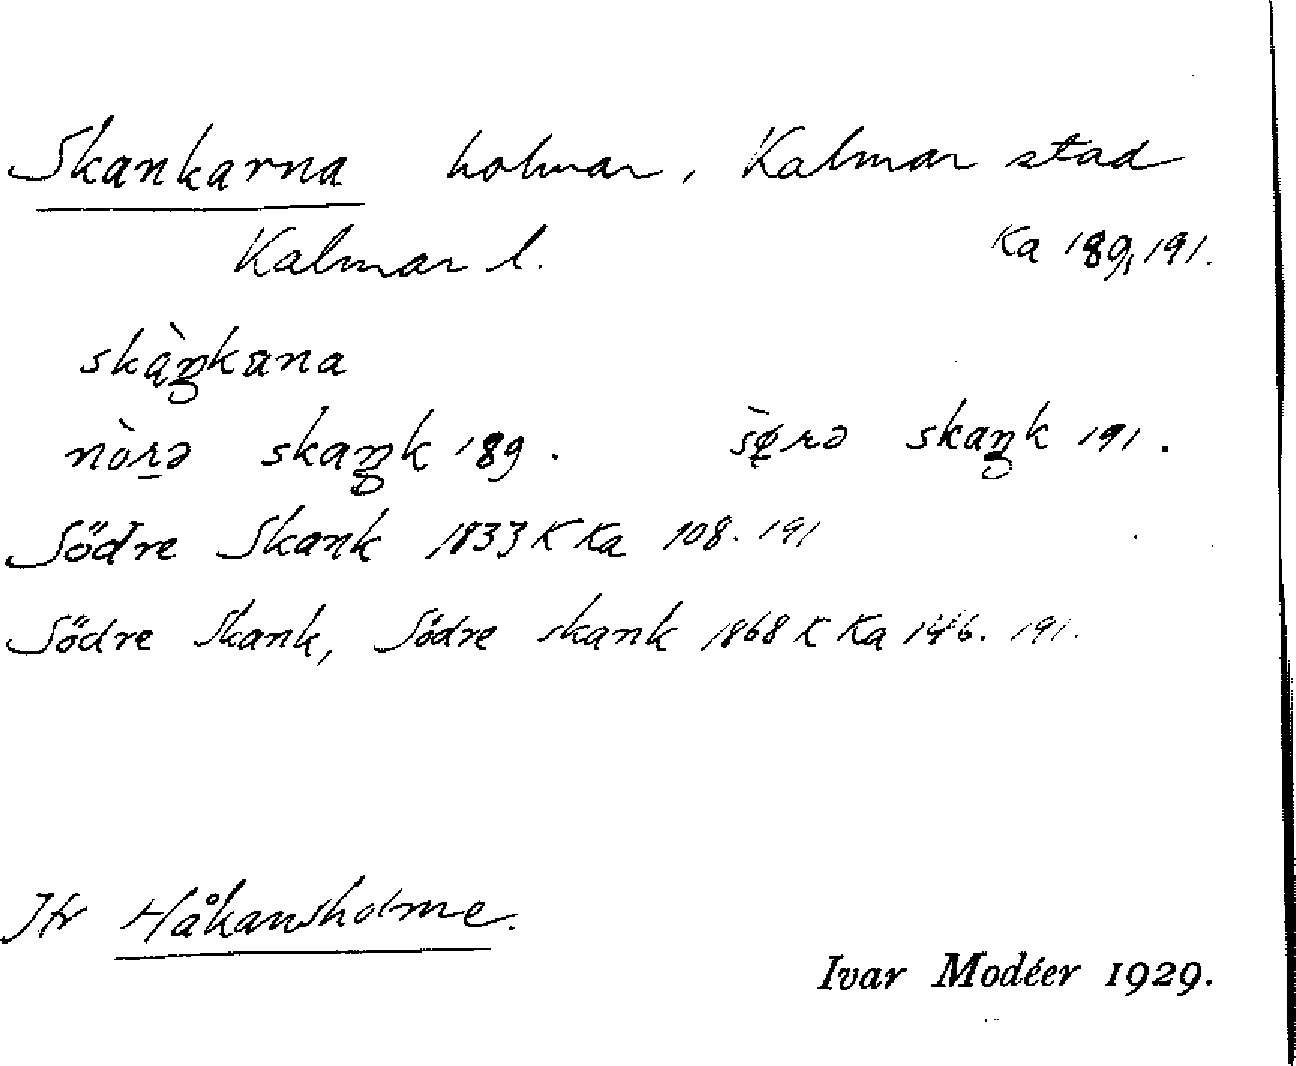 Skankarna holmar, Kalmar stad
Kalmar l. Ka 189, 191.
skàŋkana
nòrə skaŋk 189. sø̀rə skaŋk 191.
Södre Skank 1833 K Ka 108. 191
Södre Skank, Södre skank 1868 K Ka 146. 191.
Jfr Håkansholme.
Ivar Modéer 1929.